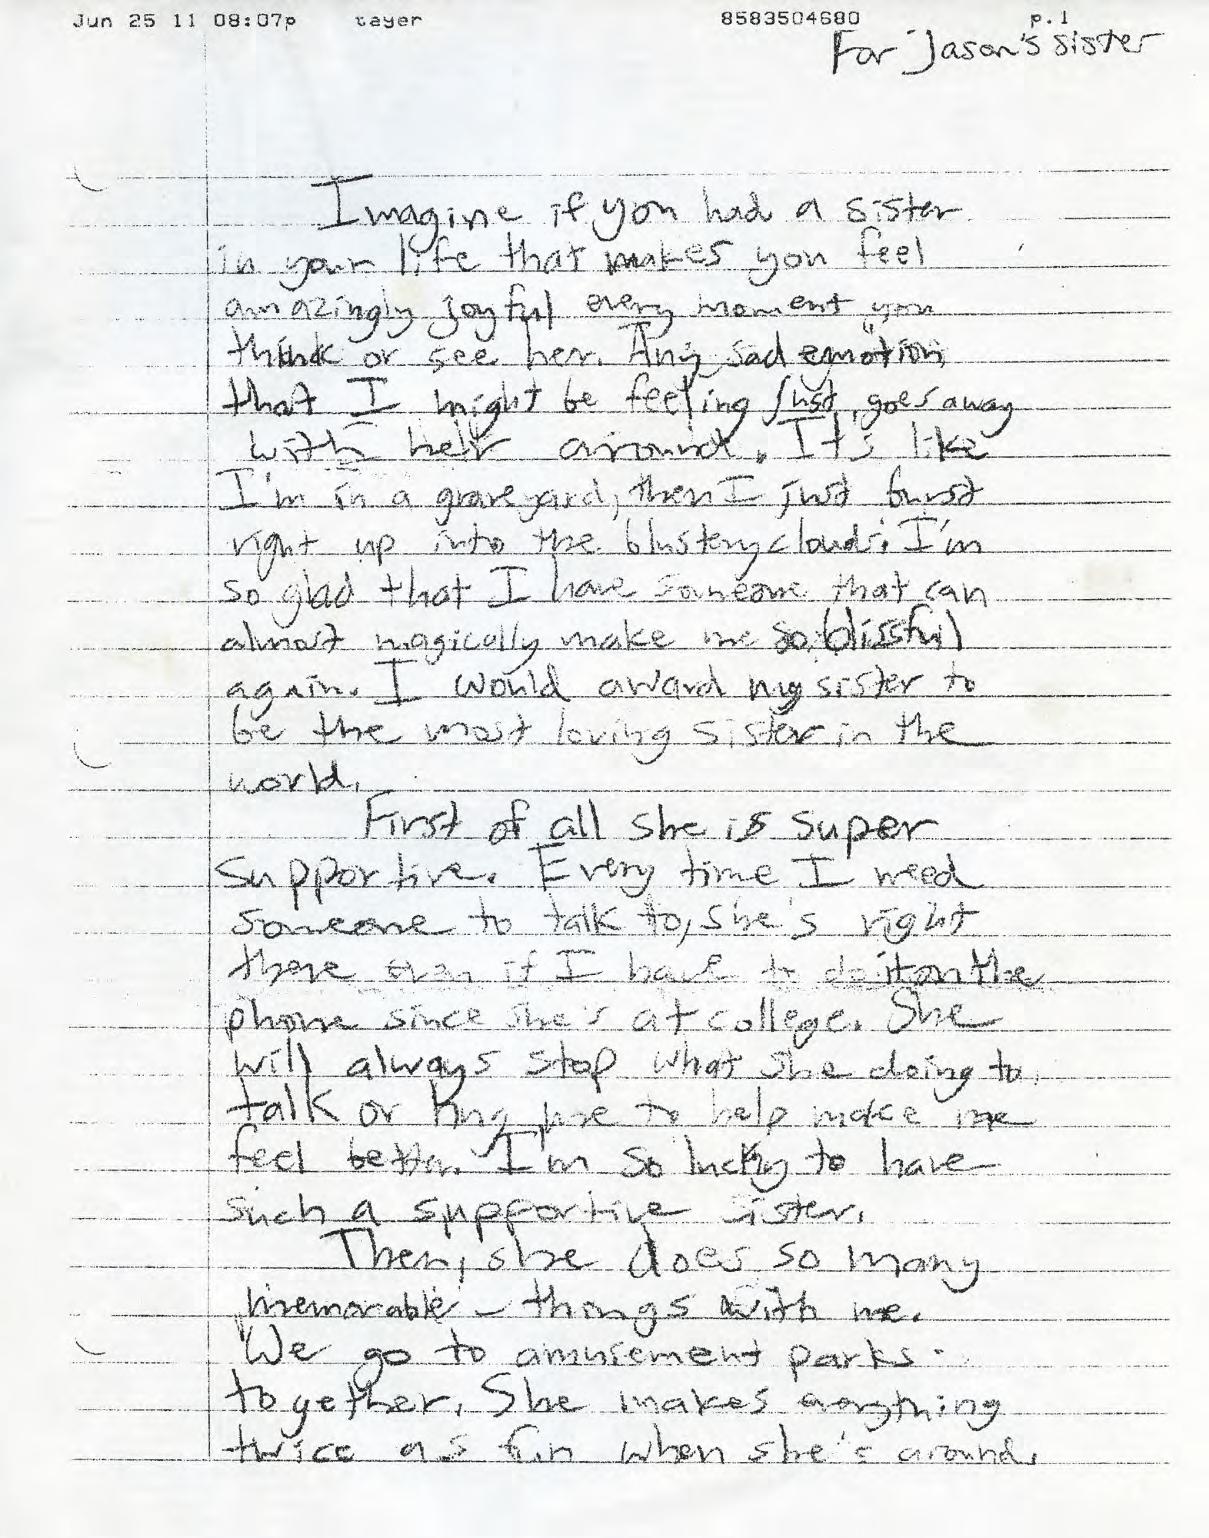 Jun 25 11 08:07p tayer 8583504680 p.1
For Jason's sister
Imagine if you had a sister
in your life that makes you feel
amazingly joyful every moment you
think or see her. Any sad emotion
that I might be feeling just goes away
with her around. It's like
I'm in a graveyard, then I just burst
right up into the blustery clouds. I'm
so glad that I have someone that can
almost magically make me so blissful
again. I would award my sister to
be the most loving sister in the
world.
First of all she is super
supportive. Every time I need
someone to talk to, she's right
there even if I have to do it on the
phone since she's at college. She
will always stop what she doing to
talk or hug me to help make me
feel better. I'm so lucky to have
such a supportive sister.
Then, she does so many
memorable things with me.
We go to amusement parks
together. She makes everything
twice as fun when she's around.